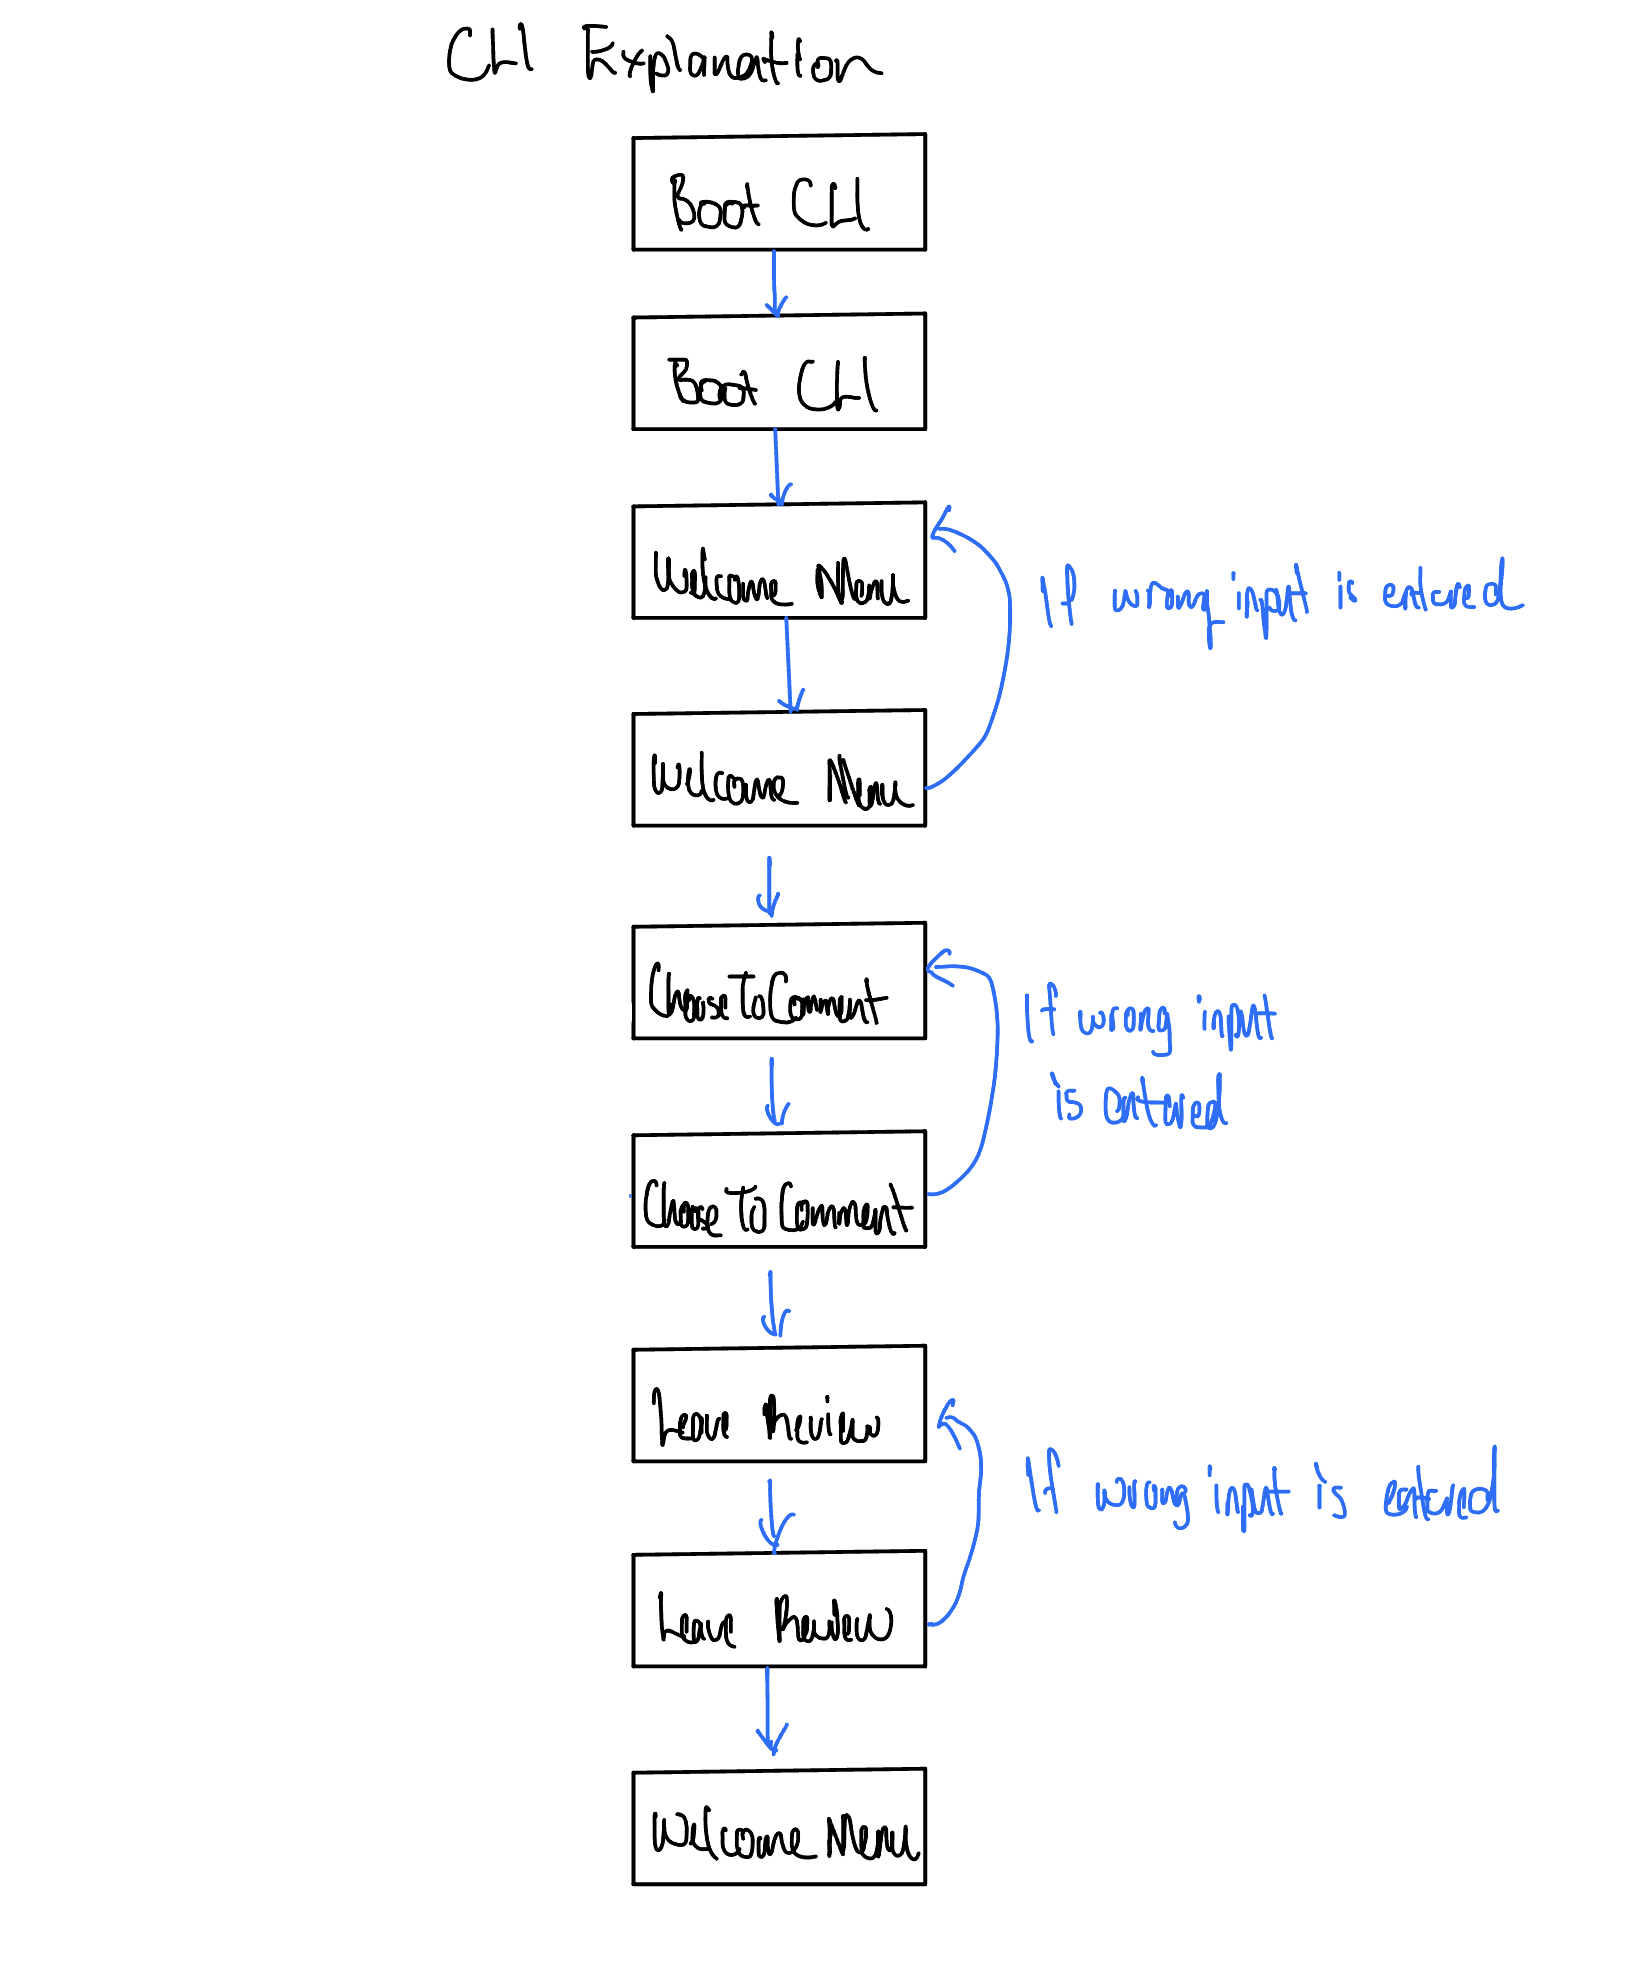 CLI Explanation
Boot CLI
Boot CLI
Welcome Menu
If wrong input is entered
Welcome Menu
Choose To Comment
If wrong input
is entered
Choose To Comment
Leave Review
If wrong input is entered
Leave Review
Welcome Menu